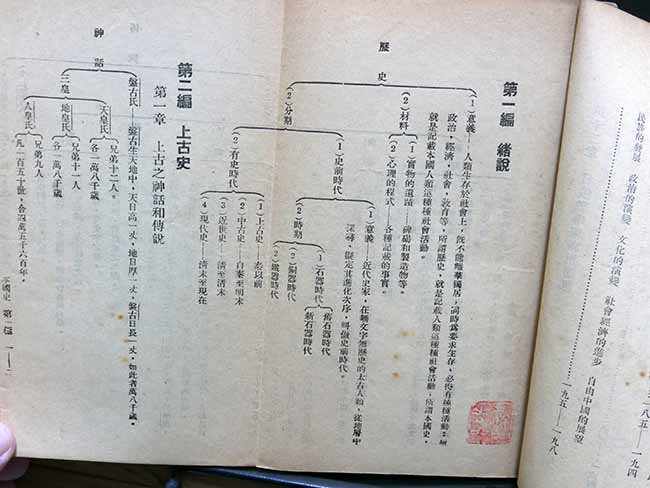 民族的發展 政治的演變 文化的演變 社會經濟的進步 自由中國的展望
一八五——一九四
一九五——一九八
第一編 緒說
歷史
(1)意義——人類生存於社會上，既不能離羣獨居，同時為要求生存，必得有種種活動：如
政治，經濟，社會，教育等，所謂歷史，就是記載人類這種種社會活動；所謂本國史，
就是記載本國人類這種種社會活動。
(2)材料
(1)實物的遺蹟——碑碣和製造物等。
(2)心理的程式——各種記載的事實。
(2)分期
(1)史前時代
(1)意義——近代史家，在無文字無歷史的太古人類，從地層中
深尋，擬定其進化次序，叫做史前時代。
(2)時期
(1)石器時代
舊石器時代
新石器時代
(2)銅器時代
(2)鐵器時代
(2)有史時代
(1)上古史——秦以前
(2)中古史——自秦至明末
(3)近世史——清至清末
(4)現代史——清末至現在
第二編 上古史
第一章 上古之神話和傳說
神話
盤古氏——盤古生天地中，天日高一丈，地日厚一丈，盤古日長一丈，如此者萬八千歲。
三皇
天皇氏
兄弟十二人。
各一萬八千歲。
地皇氏
兄弟十一人。
各一萬八千歲
人皇氏
兄弟九人
凡一百五十世，合四萬五千六百年。
本國史 第二編 一—二